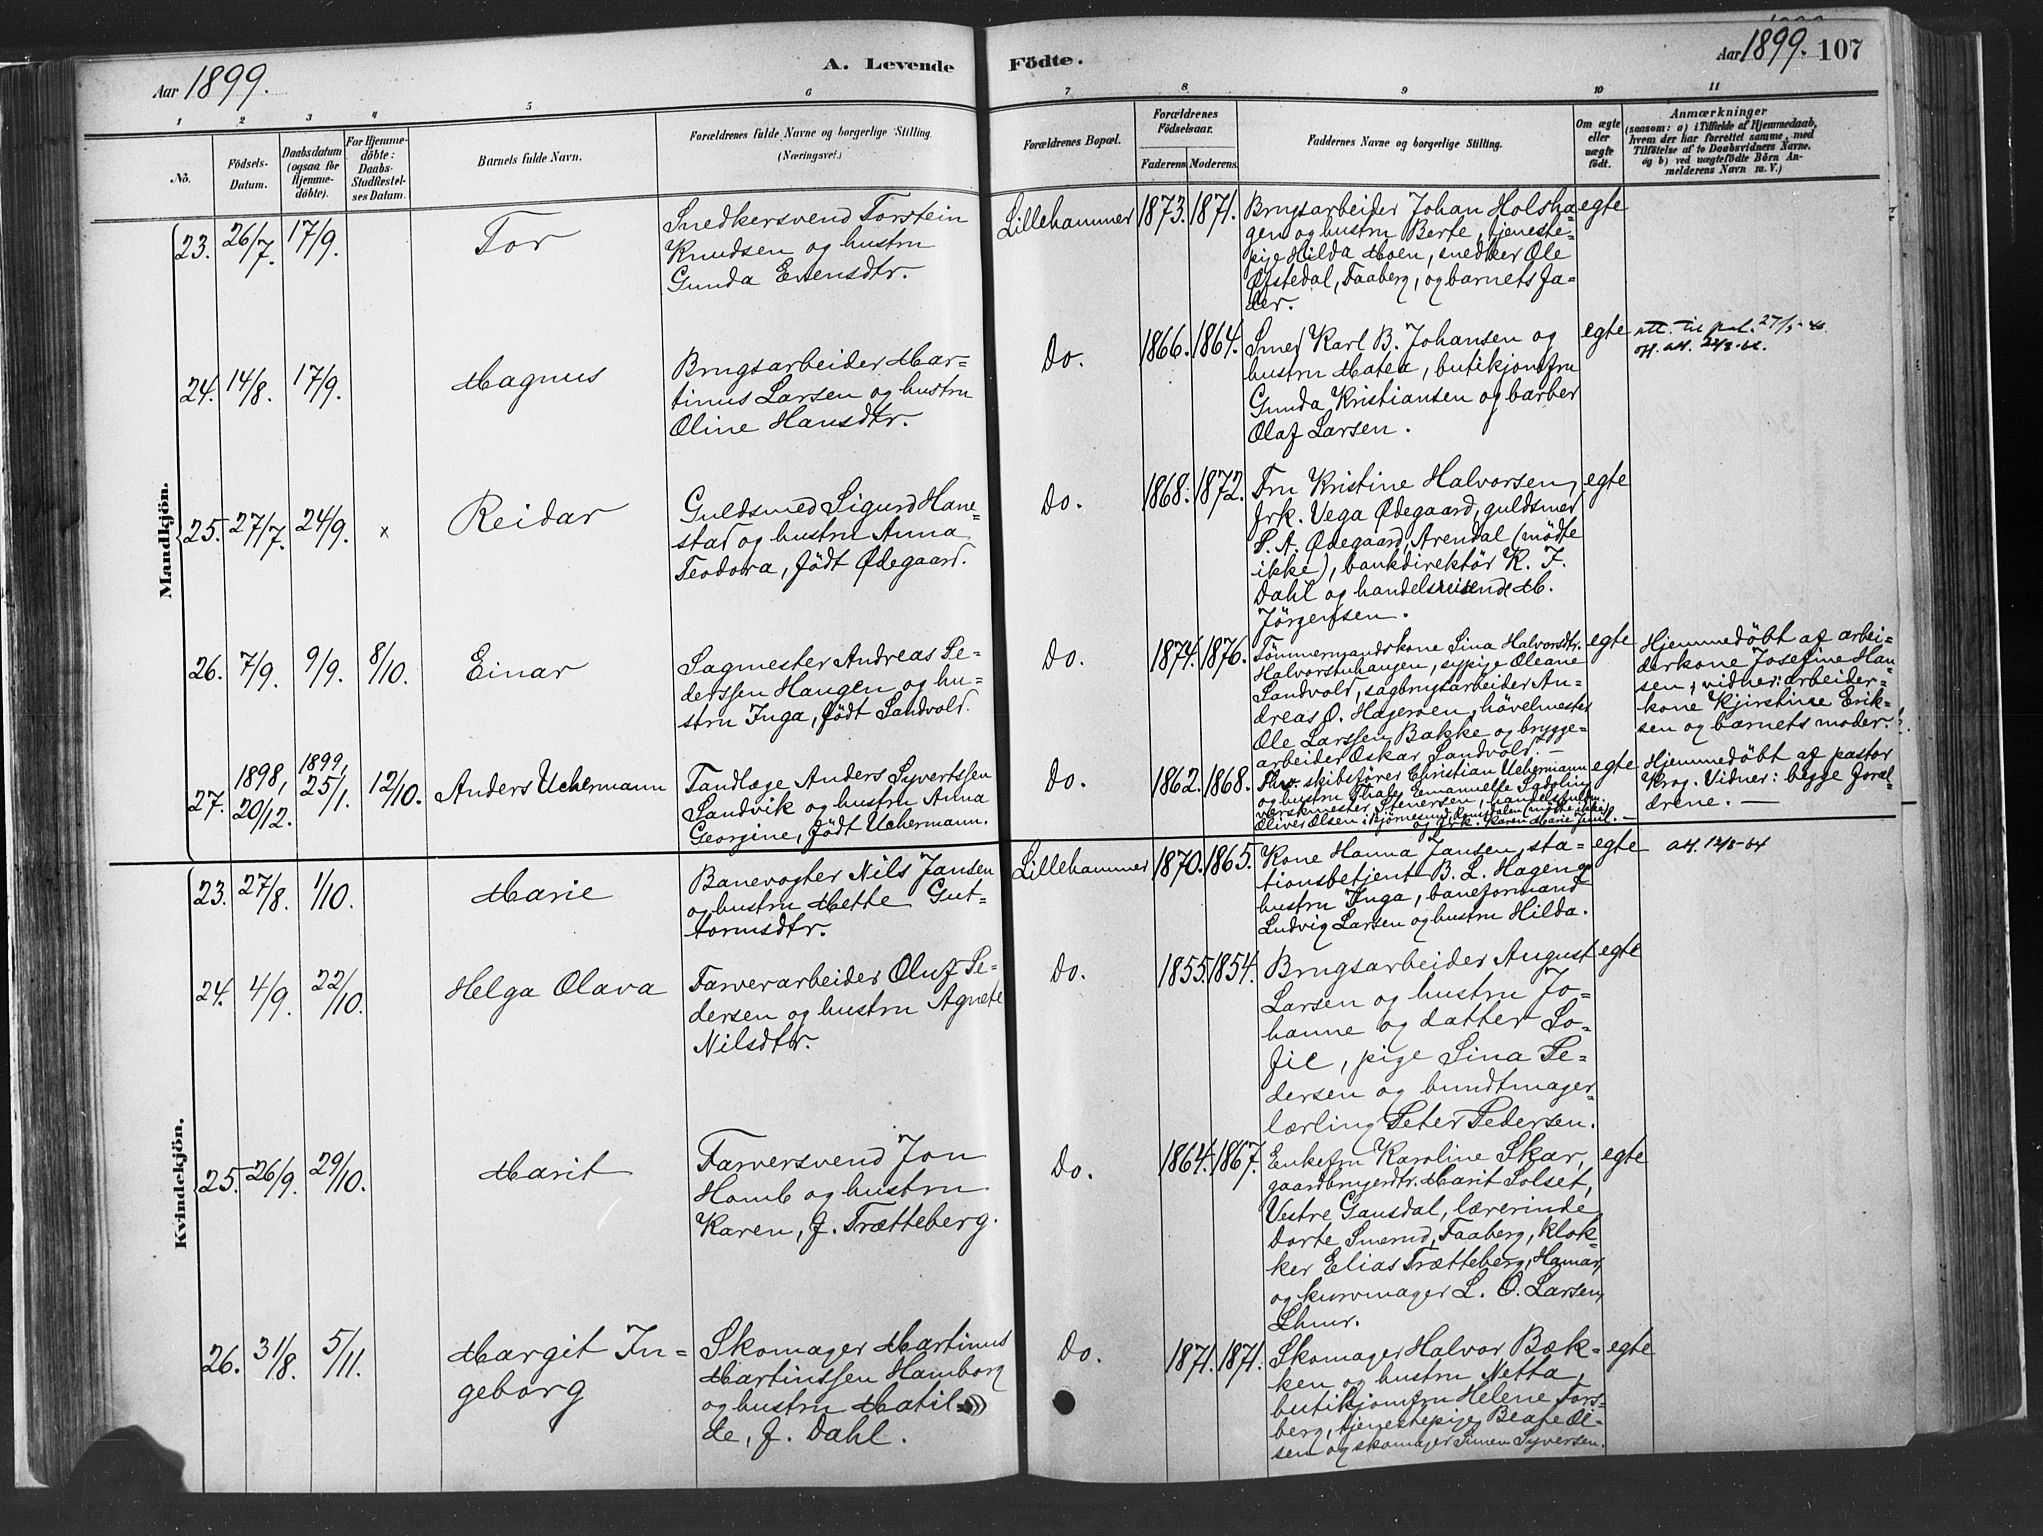 Aar 1899.
A. Levende Födte.
Aar 1899. 107
1 2 3 4 5 6 7 8 9 10 11
No.
Födsels-
Datum.
Daabsdatum
(ogsaa for
Hjemme-
döbte).
For Hjemme-
döbte:
Daabs-
Stadfæstel-
ses Datum.
Barnets fulde Navn.
Forældrenes fulde Navne og borgerlige Stilling.
(Næringsvei.)
Forældrenes Bopæl.
Forældrenes
Födselsaar.
Faderens Moderens.
Faddernes Navne og borgerlige Stilling.
Om ægte
eller
uægte
født.
Anmærkninger
(saasom: a) i Tilfælde af Hjemmedaab,
hvem der har forrettet samme, med
Tilföielse af to Daabsvidners Navne,
og b) ved uægtefödte Börn An-
melderens Navn m. V.)
Mandkjön.
23. 26/7. 17/9.
Tor
Snedkersvend Torstein
Knudsen og hustru
Gunda Evensdtr.
Lillehammer 1873. 1871.
Brugsarbeider Johan Holsha-
gen og hustru Berte, tjeneste-
pige Hilda Moen, snedker Ole
Øfstedal, Faaberg, og barnets fa-
der.
egte
24. 14/8. 17/9.
Magnus
Brugsarbeider Mar-
tinus Larsen og hustru
Oline Hansdtr.
Do. 1866. 1864.
Smed Karl B. Johansen og
hustru Matea, butikjomfru
Gunda Kristiansen og barber
Olaf Larsen.
egte
att. til pol. 27/5-40
25. 27/7. 24/9. x
Reidar
Guldsmed Sigurd Hane-
stad og hustru Anna
Teodora, født Ødegaard.
Do. 1868. 1872.
Fru Kristine Halvorsen,
frk. Vega Ødegaard, guldsmed
P. A. Ødegaard, Arendal (mødte
ikke), bankdirektör K. F.
Dahl og handelsreisende M.
Jørgensen.
egte
26. 7/9. 9/9. 8/10.
Einar
Sagmester Andreas Pe-
derssen Haugen og hu-
stru Inga, født Sandvold.
Do. 1874. 1876.
Tømmermandskone Sina Halvorsdtr.
Halvorstuhaugen, sypige Oleane
Sandvold, sagbrugsarbeider An-
dreas O. Hageroen, hövelmester
Ole Larssen Bakke og brygge-
arbeider Oskar Sandvold. —
egte
Hjemmedøbt af arbei-
derkone Josefine Han-
sen; vidner: arbeider-
kone Kjirstine Erik-
sen og barnets moder.
27. 1898, 20/12. 1899, 25/1. 12/10.
Anders Uchermann
Tandlæge Anders Syvertssen
Sandvik og hustru Anna
Georgine, født Uchermann.
Do. 1862. 1868.
skibsfører Christian Uchermann
og hustru Thalea Emanuelle
værkmester Stenersen, handelsfuldm.
Oliver Olsen i Bjørnesund, Romsdalen (mødte ikke)
og frk. Karen Marie Juul. —
egte
Hjemmedøbt af pastor
Krog. Vidner: begge foræl-
drene. —
Kvindekjön.
23. 27/8. 1/10.
Marie
Banevogter Nils Jansen
og hustru Mette Gut-
tormsdtr.
Lillehammer 1870. 1865.
Kone Hanna Jansen, sta-
tionsbetjent B. L. Hagen og
hustru Inga, baneformand
Ludvig Larsen og hustru Hilda.
egte
att. 12/8-64
24. 4/9. 22/10.
Helga Olava
Farverarbeider Oluf Pe-
dersen og hustru Agnete
Nilsdtr.
Do. 1855. 1854.
Brugsarbeider August
Larsen og hustru Jo-
hanne og datter So-
fie, pige Sina Pe-
dersen og bundtmager-
lærling Peter Pedersen.
egte
25. 26/9. 29/10.
Marit
Farversvend Jon
Homb og hustru
Karen, f. Trætteberg.
Do. 1864. 1867.
Enkefru Karoline Skar,
gaardbrugerdtr. Marit Solset,
Vestre Gausdal, lærerinde
Dorte Suerud, Faaberg, klok-
ker Elias Trætteberg, Hamar,
og kurvmager L. O. Larsen,
Lhmr.
egte
26. 31/8. 5/11.
Margit In-
geborg
Skomager Martinus
Martinssen Hamborg
og hustru Matil-
de, f. Dahl.
Do. 1871. 1871.
Skomager Halvor Bæk-
ken og hustru Netta,
butikjomfru Helene Fors-
berg, tjenestepige Beate Ol-
sen og skomager Simen Syversen.
egte